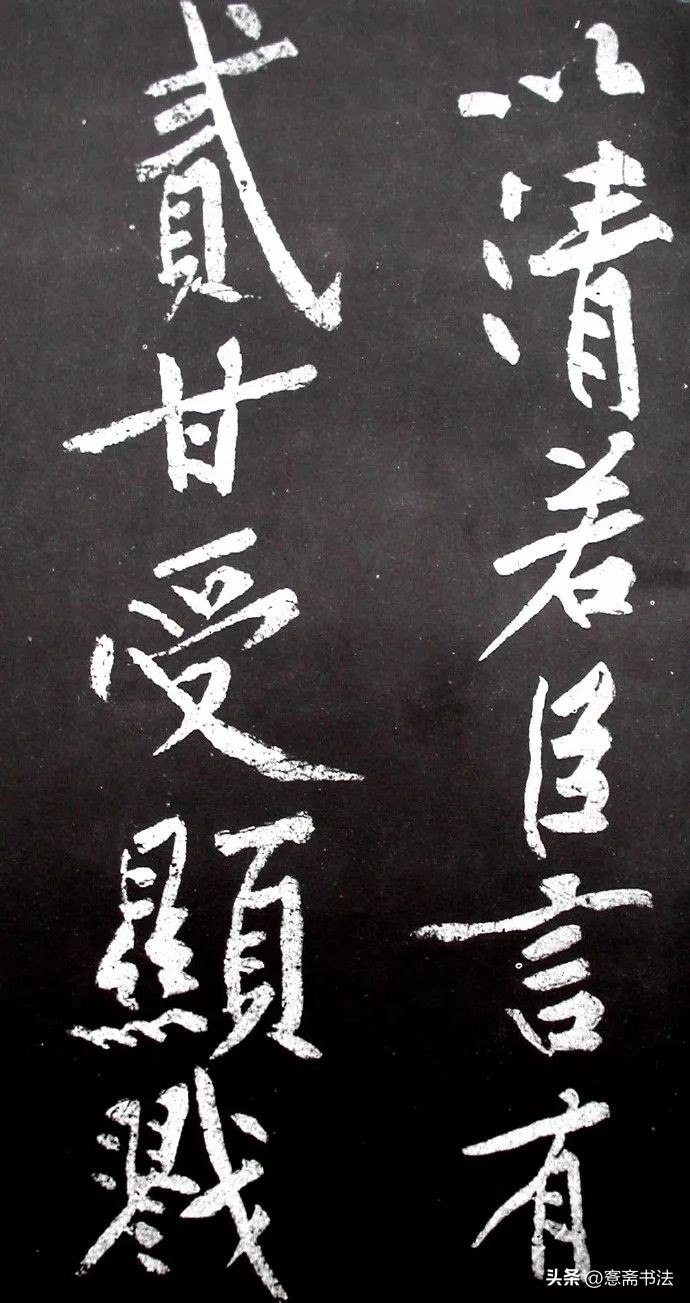 以清若臣言有
貳甘受顯戮
头条@寋斋书法